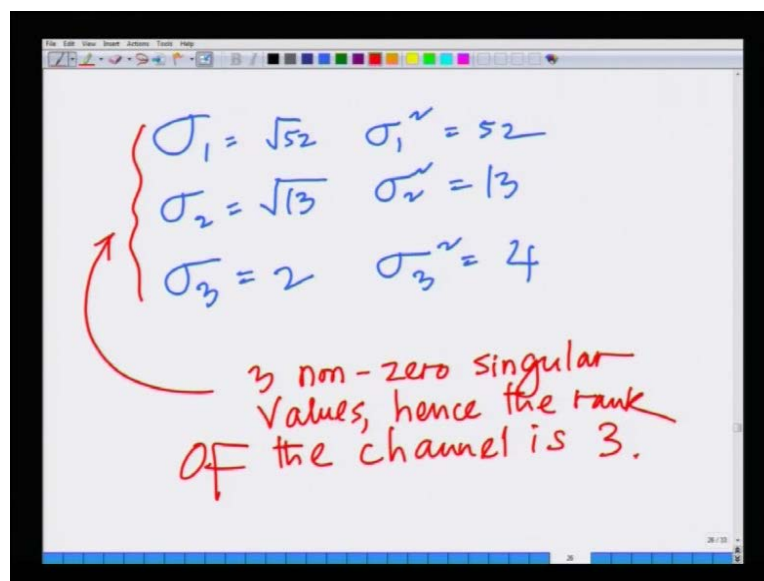 File Edit View Insert Actions Tools Help
σ₁ = √52 σ₁² = 52
σ₂ = √13 σ₂² = 13
σ₃ = 2 σ₃² = 4
3 non-zero singular
values, hence the rank
OF the channel is 3.
26